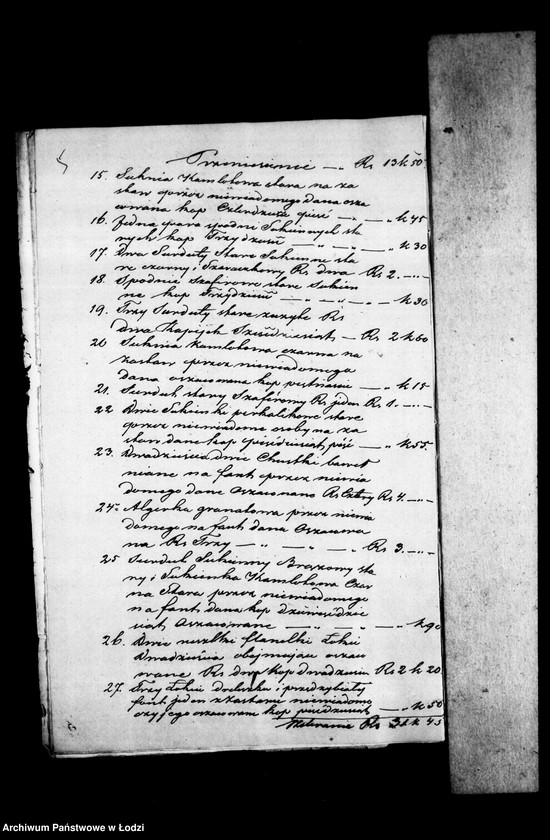 Przeniesienie — Rs 13 k 50
15. Suknia Kamlotowa stara na za
staw przez niewiadomego dana osza
cowana kop Czterdzieści pięć — „ — k 45
16. Jedna para spodni Sukiennych sta
rych kop Trzydzieści — „ — „ — k 30
17. Dwa Surduty Stare Sukienne sta
re czarny i Szaraczkowy Rs dwa Rs 2. — „ —
18. Spodnie Szafirowe stare Sukien
ne kop Trzydzieści — „ — „ — k 30
19. Trzy Surduty stare zużyte Rs
dwa Kopiejek Sześćdziesiąt — Rs 2 k 60
20 Suknia kamlotowa czarna na
zastaw przez niewiadomego
dana oszacowana kop piętnaście — „ k 15
21. Surdut stary Szafirowy Rs jeden Rs 1. — „ —
22 Dwie Sukienki perkalikowe stare
przez niewiadome osoby na za
staw dane kop pięćdziesiąt pięć — „ k 55.
23. Dwadzieścia dwie Chustki baweł
niane na fant przez niewia
domego dane oszacowano Rs Cztery Rs 4. — „ —
24. Algierka granatowa przez niewia
domego na fant dana Oszacowa
na Rs Trzy „ — „ — Rs 3. — „ —
25 Surdut Sukienny Brązowy sta
ry i Sukienka Kamlotowa Czar
na Stara przez niewiadomego
na fant dana kop dziewięćdzie
siąt Oszacowane — „ — „ — k 90
26. Dwie resztki flanelki Łokci
Dwadzieścia obejmujące oszaco
wane Rs dwa Kop dwadzieścia Rs 2 k 20
27. Trzy Łokcie i
fant jeden z zastawu niewiadomo
czyjego oszacowane kop pięćdziesiąt — „ k 50
Rs 31 k 45
Archiwum Państwowe w Łodzi